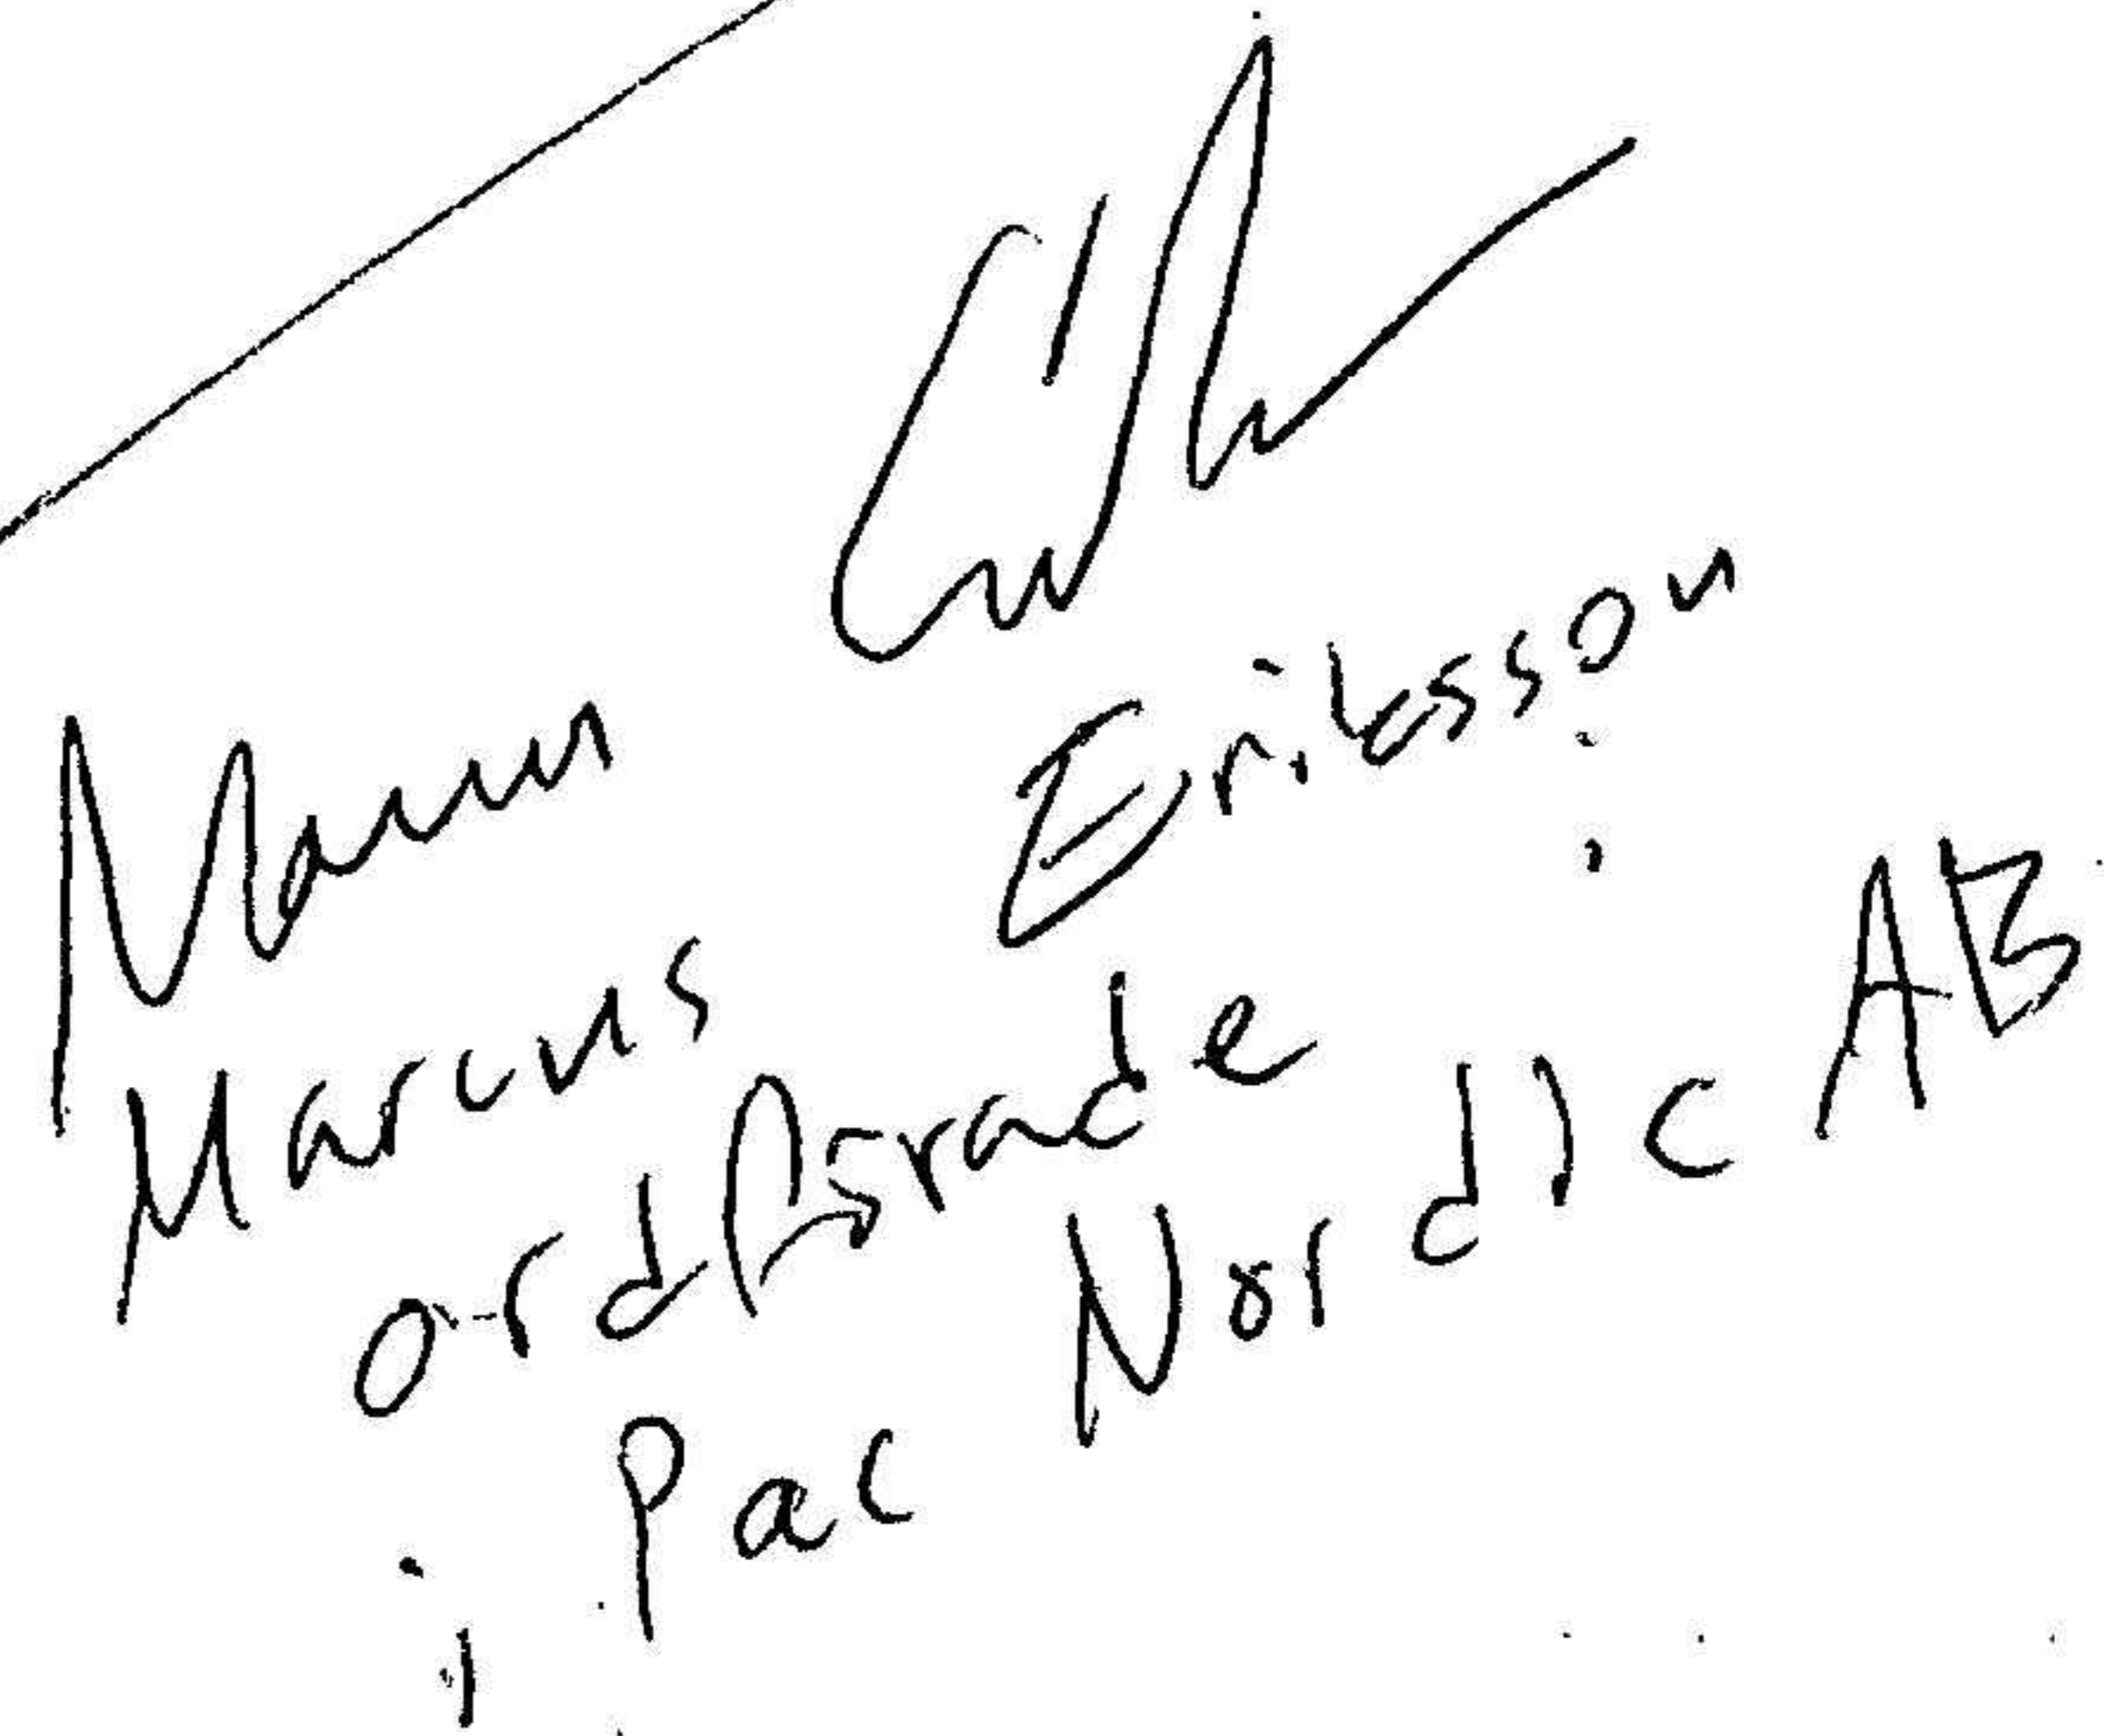 Marcus Eriksson
ordförande
i Pac Nordic AB